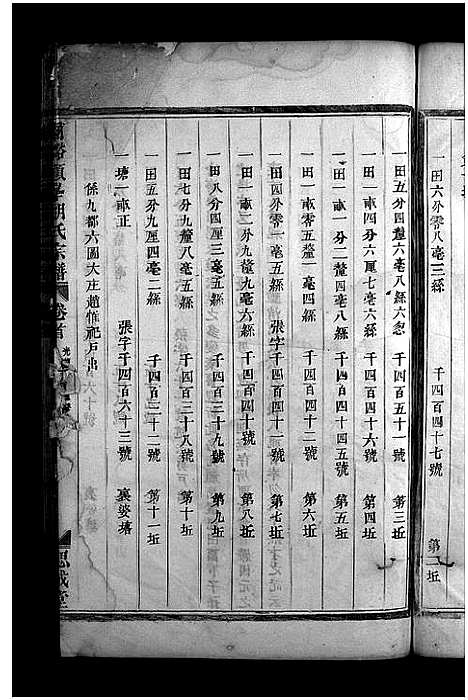 一田六分零八毫三絲 千四百四十七號 第二坵
一田五分四釐六毫八絲六忽 千四百五十一號 第三坵
一田一畝四分六厘七毫六絲 千四百四十六號 第四坵
一田一畝一分二釐四毫八絲 千四百四十五號 第五坵
一田一畝零五釐一毫四絲 千四百四十四號 第六坵
一田四分零一毫五絲 張字千四百四十一號 第七坵
一田一畝二分九釐九毫六絲 千四百四十號 第八坵
一田八分四厘三毫五絲 千四百三十九號 第九坵
一田七分九釐八毫五絲 千四百三十八號 第十坵
一田五分九厘四毫二絲 千四百三十二號 第十一坵
一塘一畝正 張字千四百六十三號 裏婆塘
係九都六圖大庄趙惟祀戶出
胡氏宗譜 卷首 光 思誠堂